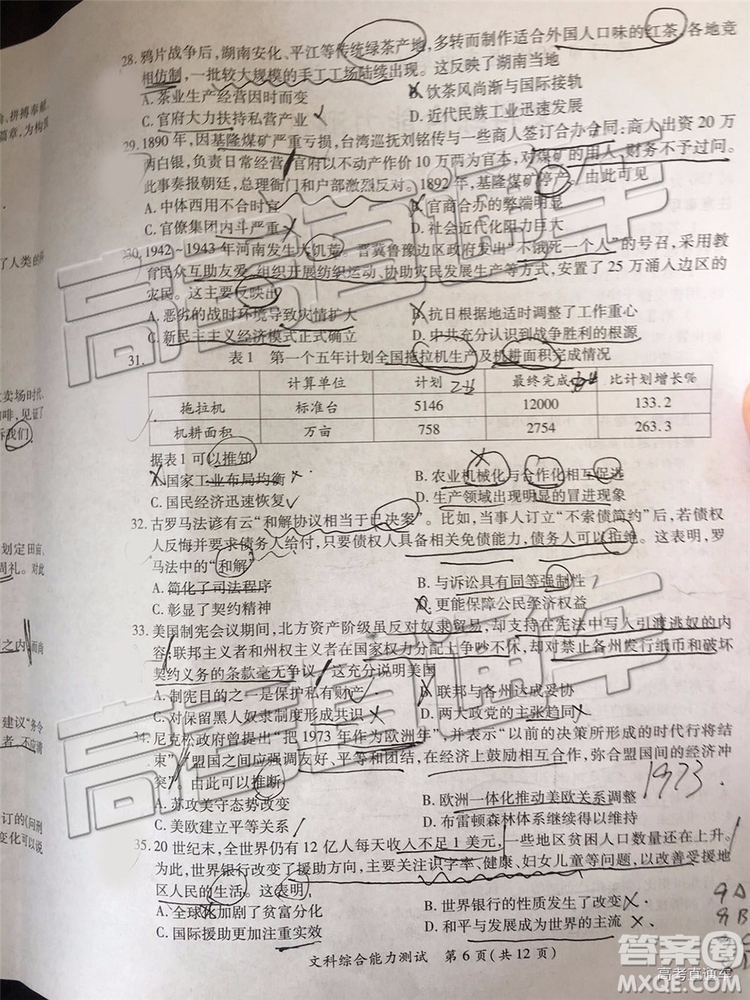 28. 鸦片战争后，湖南安化、平江等传统绿茶产地，多转而制作适合外国人口味的红茶，各地竞
相仿制，一批较大规模的手工工场陆续出现。这反映了湖南当地
A. 茶业生产经营因时而变 B. 饮茶风尚渐与国际接轨
C. 官府大力扶持私营产业 D. 近代民族工业迅速发展
29. 1890年，因基隆煤矿严重亏损，台湾巡抚刘铭传与一些商人签订合办合同：商人出资20万
两白银，负责日常经营；官府以不动产作价10万两为官本，对煤矿的用人、财务不予过问。
此事奏报朝廷，总理衙门和户部激烈反对。1892年，基隆煤矿停产。由此可见
A. 中体西用不合时宜 B. 官商合办的弊端明显
C. 官僚集团内斗严重 D. 社会近代化阻力巨大
30. 1942～1943年河南发生大饥荒。晋冀鲁豫边区政府发出“不饿死一个人”的号召，采用教
育民众互助友爱、组织开展纺织运动、协助灾民发展生产等方式，安置了25万涌入边区的
灾民。这主要反映出
A. 恶劣的战时环境导致灾情扩大 B. 抗日根据地适时调整了工作重心
C. 新民主主义经济模式正式确立 D. 中共充分认识到战争胜利的根源
31. 表1 第一个五年计划全国拖拉机生产及机耕面积完成情况
计算单位 计划 最终完成 比计划增长%
拖拉机 标准台 5146 12000 133.2
机耕面积 万亩 758 2754 263.3
据表1可以推知
A. 国家工业布局均衡 B. 农业机械化与合作化相互促进
C. 国民经济迅速恢复 D. 生产领域出现明显的冒进现象
32. 古罗马法谚有云“和解协议相当于已决案”。比如，当事人订立“不索债简约”时，若债权
人反悔并要求债务人给付，只要债权人具备相关免债能力，债务人可以拒绝。这表明，罗
马法中的“和解”
A. 简化了司法程序 B. 与诉讼具有同等强制性
C. 彰显了契约精神 D. 更能保障公民经济权益
33. 美国制宪会议期间，北方资产阶级虽反对奴隶贸易，却支持在宪法中写入引渡逃奴的内
容；联邦主义者和州权主义者在国家权力分配上争吵不休，却对禁止各州发行纸币和破坏
契约义务的条款毫无争议。这充分说明美国
A. 制宪目的之一是保护私有财产 B. 联邦与各州达成妥协
C. 对保留黑人奴隶制度形成共识 D. 两大政党的主张趋同
34. 尼克松政府曾提出“把1973年作为欧洲年”，并表示“以前的决策所形成的时代行将结
束”“盟国之间应强调友好、平等关系，在经济上鼓励相互合作，弥合盟国间的经济冲
突”。由此可以推断
A. 苏攻美守态势改变 B. 欧洲一体化推动美欧关系调整
C. 美欧建立平等关系 D. 布雷顿森林体系继续得以维持
1973
35. 20世纪末，全世界仍有12亿人每天收入不足1美元，一些地区贫困人口数量还在上升。
为此，世界银行改变了援助方向，主要关注识字率、健康、妇女儿童等问题，以改善受援地
区人民的生活。这表明，
A. 全球化加剧了贫富分化 B. 世界银行的性质发生了改变
C. 国际援助更加注重实效 D. 和平与发展成为世界的主流
文科综合能力测试 第6页(共12页)
高考直通车
答案圈
MXQE.COM